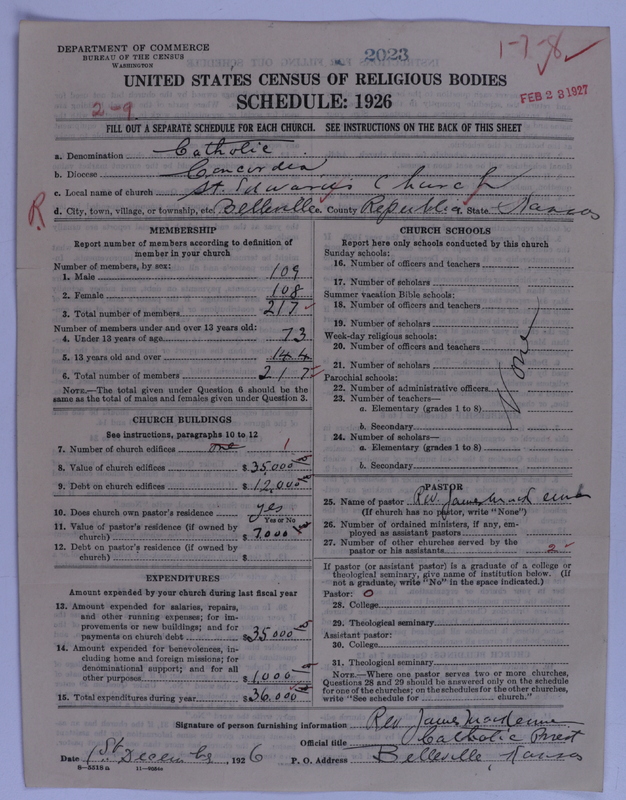 DEPARTMENT OF COMMERCE
BUREAU OF THE CENSUS
WASHINGTON
2023
1-7-8
UNITED STATES CENSUS OF RELIGIOUS BODIES
SCHEDULE: 1926
FEB 23 1927
2-9
FILL OUT A SEPARATE SCHEDULE FOR EACH CHURCH. SEE INSTRUCTIONS ON THE BACK OF THIS SHEET
a. Denomination Catholic
b. Diocese Concordia
c. Local name of church St. Edward's Church
R
d. City, town, village, or township, etc. Belleville e. County Republic f. State Kansas
MEMBERSHIP
Report number of members according to definition of
member in your church
Number of members, by sex:
1. Male 109
2. Female 108
3. Total number of members 217
Number of members under and over 13 years old:
4. Under 13 years of age 73
5. 13 years old and over 144
6. Total number of members 217
NOTE.—The total given under Question 6 should be the
same as the total of males and females given under Question 3.
CHURCH BUILDINGS
See instructions, paragraphs 10 to 12
7. Number of church edifices one 1
8. Value of church edifices $ 35,000
9. Debt on church edifices $ 12,000
10. Does church own pastor's residence? yes
Yes or No
11. Value of pastor's residence (if owned by
church) $ 7,000
12. Debt on pastor's residence (if owned by
church) $
EXPENDITURES
Amount expended by your church during last fiscal year
13. Amount expended for salaries, repairs,
and other running expenses; for im-
provements or new buildings; and for
payments on church debt $ 35,000
14. Amount expended for benevolences, in-
cluding home and foreign missions; for
denominational support; and for all
other purposes $ 1000
15. Total expenditures during year $ 36,000
CHURCH SCHOOLS
Report here only schools conducted by this church
Sunday schools:
16. Number of officers and teachers
17. Number of scholars
Summer vacation Bible schools:
18. Number of officers and teachers
19. Number of scholars
Week-day religious schools:
20. Number of officers and teachers
21. Number of scholars
Parochial schools:
22. Number of administrative officers
23. Number of teachers—
a. Elementary (grades 1 to 8)
b. Secondary
24. Number of scholars—
a. Elementary (grades 1 to 8)
b. Secondary
None
PASTOR
25. Name of pastor Rev. James
(If church has no pastor, write "None")
26. Number of ordained ministers, if any, em-
ployed as assistant pastors
27. Number of other churches served by the
pastor or his assistants 2
If pastor (or assistant pastor) is a graduate of a college or
theological seminary, give name of institution below. (If
not a graduate, write "No" in the space indicated.)
Pastor: O
28. College
29. Theological seminary
Assistant pastor:
30. College
31. Theological seminary
NOTE.—Where one pastor serves two or more churches,
Questions 28 and 29 should be answered only on the schedule
for one of the churches; on the schedules for the other churches,
write "See schedule for church."
Signature of person furnishing information Rev James
Official title Catholic Priest
Date 1st December, 1926 P. O. Address Belleville, Kansas
8—5518a 11—9050a